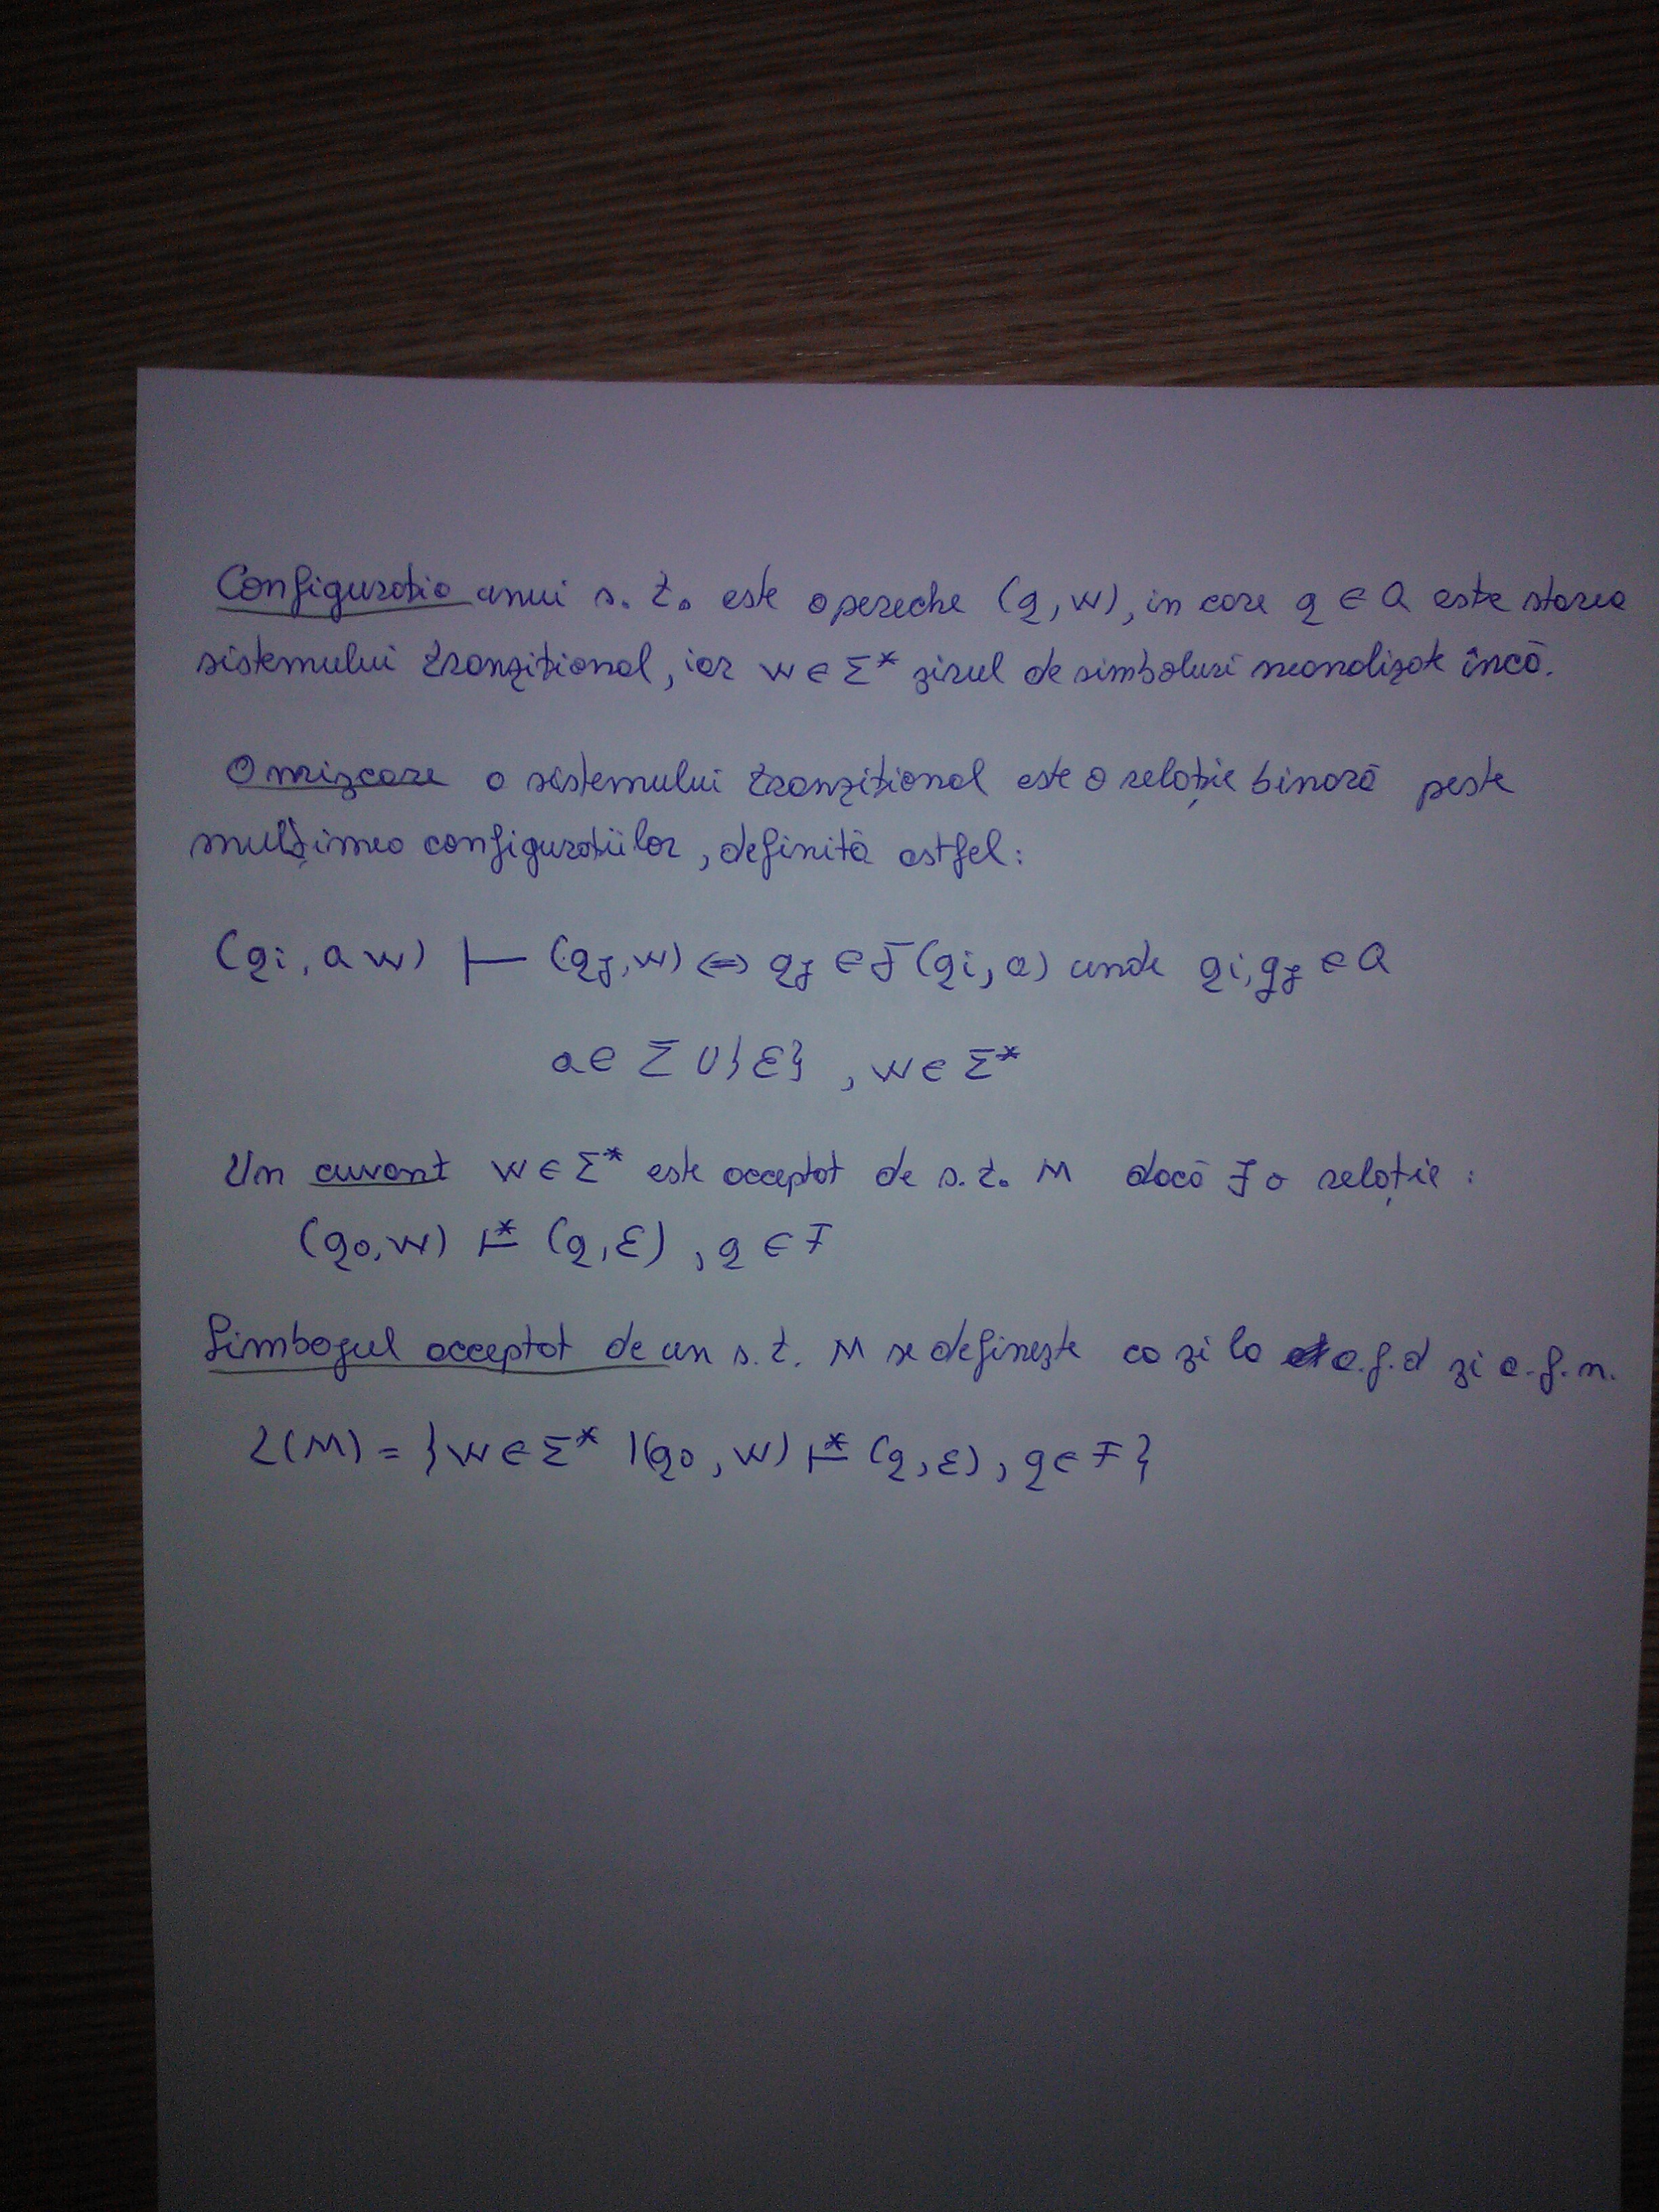 Configurația unui s. t. este o pereche (q, w), in care q ∈ Q este starea
sistemului tranzițional, iar w ∈ Σ* șirul de simboluri neanalizate încă.
O mișcare a sistemului tranzițional este o relație binară peste
mulțimea configurațiilor, definită astfel:
(qi, aw) ⊢ (qj, w) ⇔ qj ∈ δ(qi, a) unde qi, qj ∈ Q
a ∈ Σ ∪ {ε}, w ∈ Σ*
Un cuvant w ∈ Σ* este acceptat de s. t. M dacă ∃ o relație:
(q0, w) ⊢* (q, ε), q ∈ F
Limbajul acceptat de un s. t. M se definește ca și la a.f.d și a.f.n.
L(M) = {w ∈ Σ* | (q0, w) ⊢* (q, ε), q ∈ F}